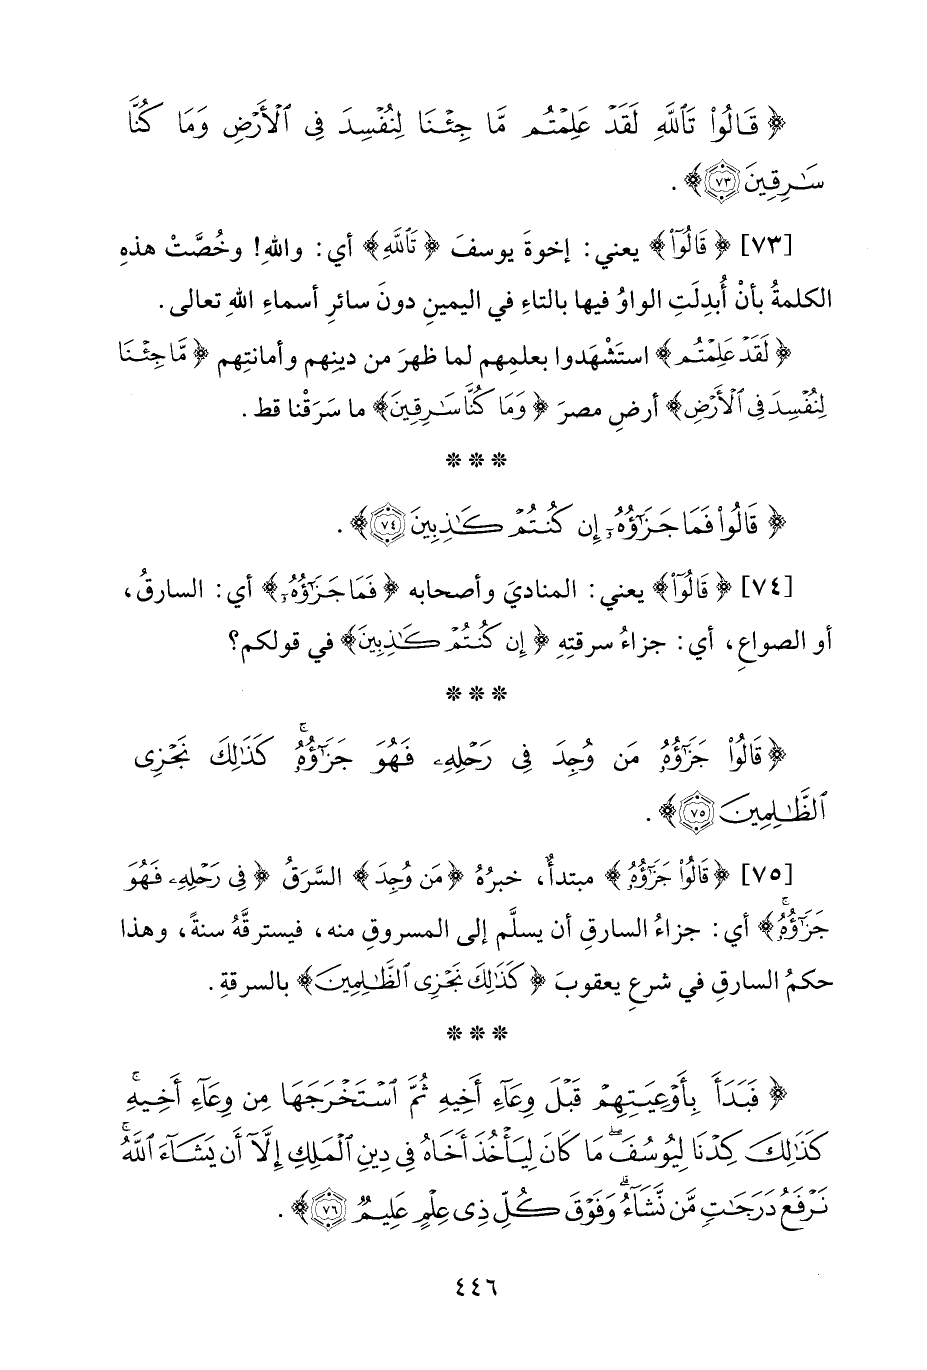 ﴿ قَالُوا۟ تَٱللَّهِ لَقَدْ عَلِمْتُم مَّا جِئْنَا لِنُفْسِدَ فِى ٱلْأَرْضِ وَمَا كُنَّا
سَـٰرِقِينَ ﴿٧٣﴾ ﴾ .
[٧٣] ﴿ قَالُوا۟ ﴾ يعني: إخوةَ يوسفَ ﴿ تَٱللَّهِ ﴾ أي: واللهِ! وخُصَّتْ هذهِ
الكلمةُ بأنْ أُبدِلَتِ الواوُ فيها بالتاءِ في اليمينِ دونَ سائرِ أسماءِ اللهِ تعالى .
﴿ لَقَدْ عَلِمْتُم ﴾ استَشْهَدوا بعلمِهم لما ظهرَ من دينِهم وأمانتِهم ﴿ مَّا جِئْنَا
لِنُفْسِدَ فِى ٱلْأَرْضِ ﴾ أرضِ مصرَ ﴿ وَمَا كُنَّا سَـٰرِقِينَ ﴾ ما سَرَقْنا قط .
* * *
﴿ قَالُوا۟ فَمَا جَزَٰٓؤُهُۥٓ إِن كُنتُمْ كَـٰذِبِينَ ﴿٧٤﴾ ﴾ .
[٧٤] ﴿ قَالُوا۟ ﴾ يعني: المناديَ وأصحابه ﴿ فَمَا جَزَٰٓؤُهُۥٓ ﴾ أي: السارقُ،
أو الصواعِ، أي: جزاءُ سرقتِهِ ﴿ إِن كُنتُمْ كَـٰذِبِينَ ﴾ في قولكم؟
* * *
﴿ قَالُوا۟ جَزَٰٓؤُهُۥ مَن وُجِدَ فِى رَحْلِهِۦ فَهُوَ جَزَٰٓؤُهُۥ ۚ كَذَٰلِكَ نَجْزِى
ٱلظَّـٰلِمِينَ ﴿٧٥﴾ ﴾ .
[٧٥] ﴿ قَالُوا۟ جَزَٰٓؤُهُۥ ﴾ مبتدأٌ، خبرُهُ ﴿ مَن وُجِدَ ﴾ السَّرَقُ ﴿ فِى رَحْلِهِۦ فَهُوَ
جَزَٰٓؤُهُۥ ۚ ﴾ أي: جزاءُ السارقِ أن يسلَّم إلى المسروقِ منه، فيسترقَّهُ سنةً، وهذا
حكمُ السارقِ في شرعِ يعقوبَ ﴿ كَذَٰلِكَ نَجْزِى ٱلظَّـٰلِمِينَ ﴾ بالسرقةِ .
* * *
﴿ فَبَدَأَ بِأَوْعِيَتِهِمْ قَبْلَ وِعَآءِ أَخِيهِ ثُمَّ ٱسْتَخْرَجَهَا مِن وِعَآءِ أَخِيهِ ۚ
كَذَٰلِكَ كِدْنَا لِيُوسُفَ ۖ مَا كَانَ لِيَأْخُذَ أَخَاهُ فِى دِينِ ٱلْمَلِكِ إِلَّآ أَن يَشَآءَ ٱللَّهُ ۚ
نَرْفَعُ دَرَجَـٰتٍ مَّن نَّشَآءُ ۗ وَفَوْقَ كُلِّ ذِى عِلْمٍ عَلِيمٌ ﴿٧٦﴾ ﴾ .
٤٤٦